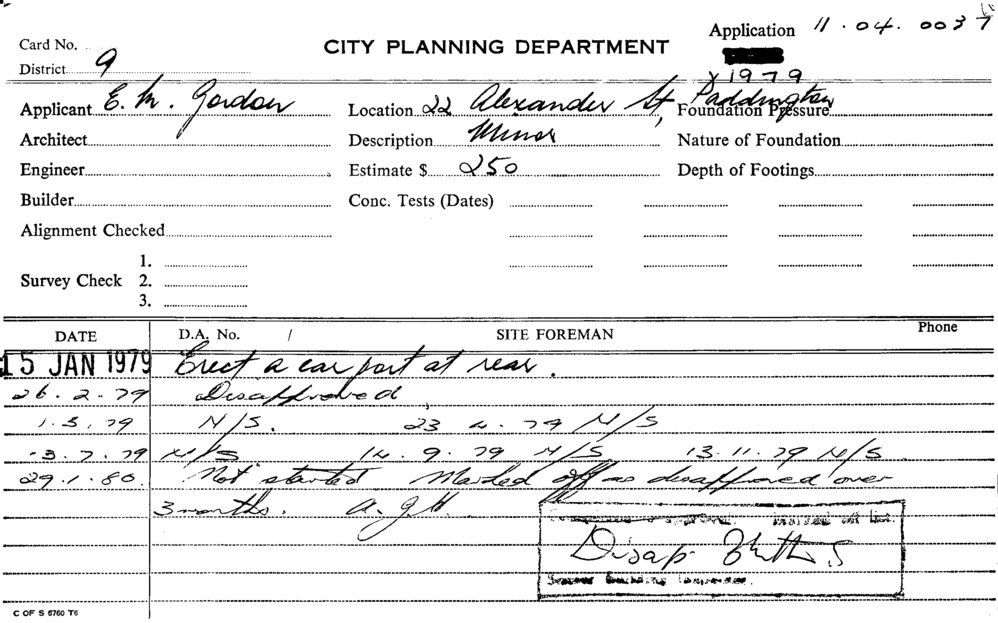 Application 11.04.0037
Card No. CITY PLANNING DEPARTMENT
District 9 1979
Applicant E. M. Gordon Location 22 Alexander St, Paddington Foundation Pressure
Architect Description Minor Nature of Foundation
Engineer Estimate $ 250 Depth of Footings
Builder Conc. Tests (Dates)
Alignment Checked
1.
Survey Check 2.
3.
DATE D.A. No. / SITE FOREMAN Phone
15 JAN 1979 Erect a car port at rear.
26.2.79 Disapproved
1.5.79 N/S. 23 4.79 N/S
3.7.79 N/S 14.9.79 N/S 13.11.79 N/S
29.1.80. Not started Marked off as disapproved over
3 months. A.J.H.
Disap
C OF S 5760 T6